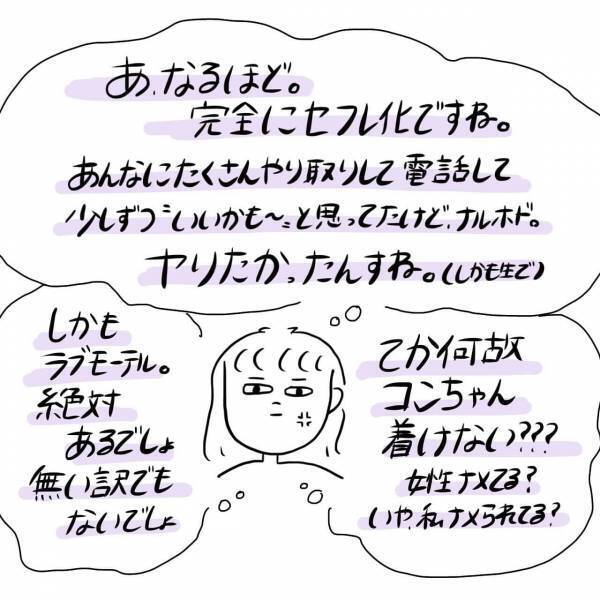 あ、なるほど。
完全にセフレ化ですね。
あんなにたくさんやり取りして電話して
少しずつ"いいかも〜"と思ってたけど、ナルホド。
ヤりたかったんすね。(しかも生で)
しかも
ラブモーテル。
絶対
あるでしょ
無い訳でも
ないでしょ
てか何故
コンちゃん
着けない???
女性ナメてる?
いや、私ナメられてる?